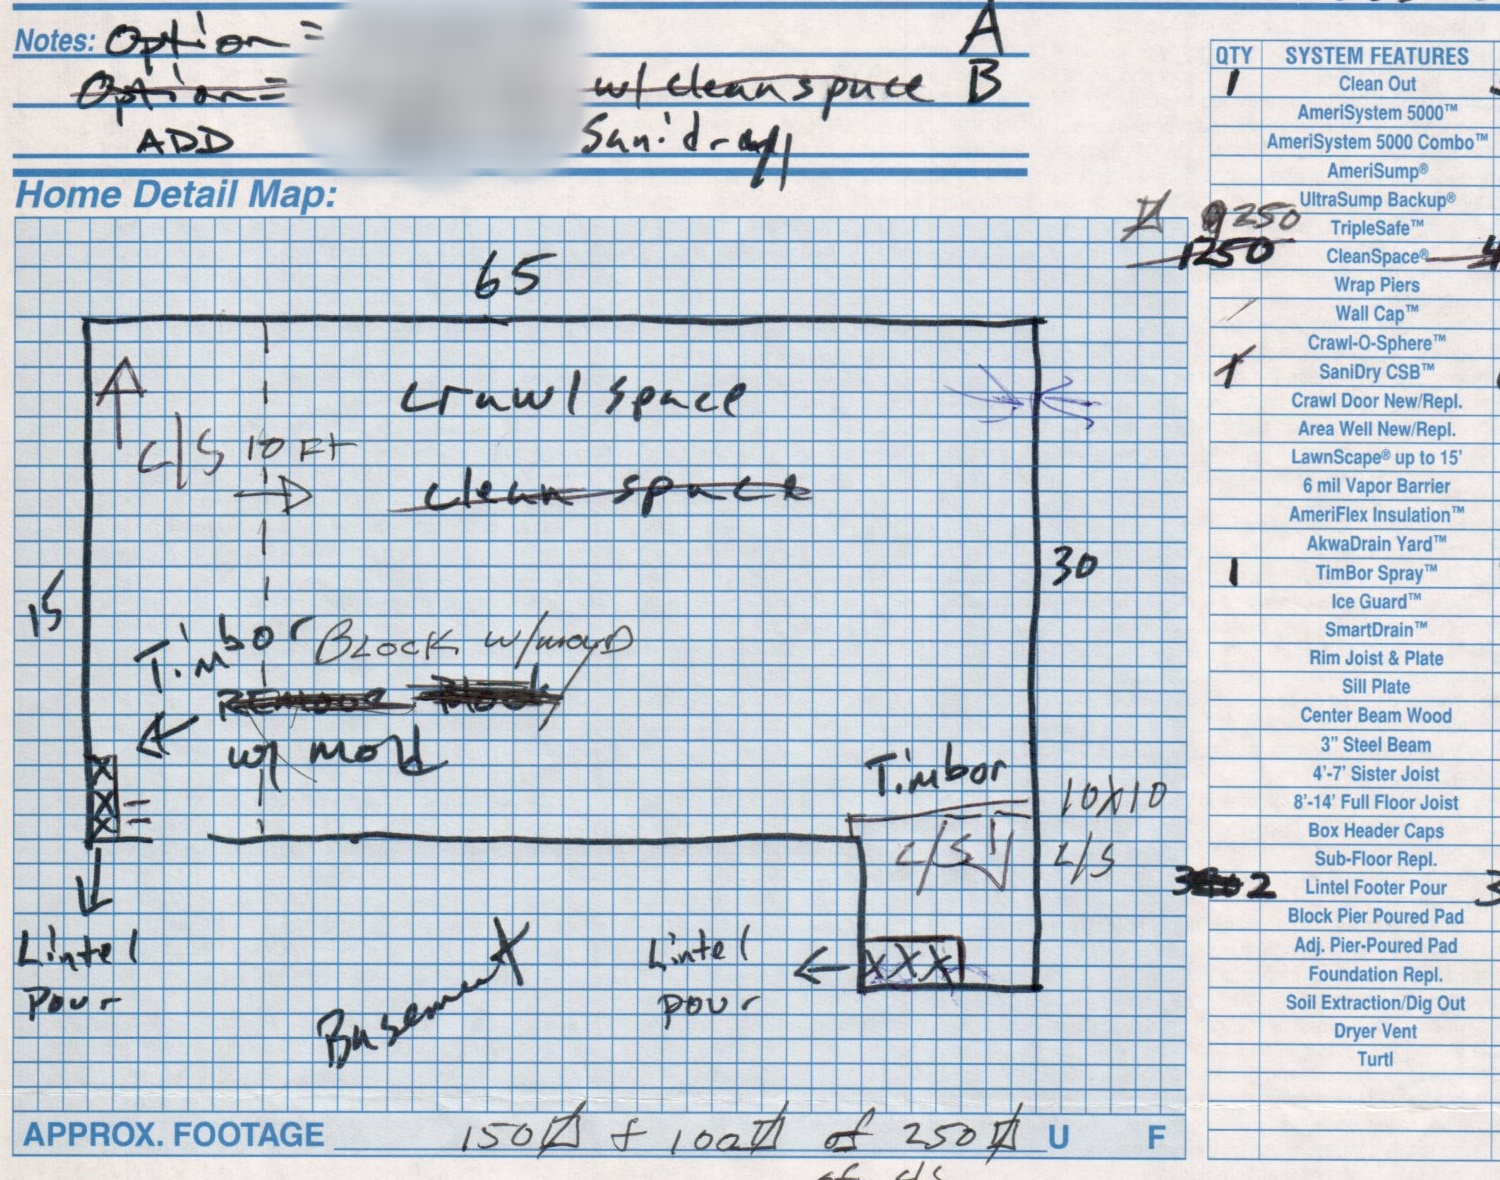 Notes: Option = A
Option = w/ cleanspace B
ADD Sanidry
Home Detail Map:
65
crawl space
C/S 10 FT
clean space
15
30
Timbor BLOCK w/mold
REMOVE Block
w/ mold
Timbor
10X10
C/S
C/S
Lintel
pour
Basement
Lintel
pour
APPROX. FOOTAGE 150 + 100 of 250 U F
of c/s
QTY SYSTEM FEATURES
1 Clean Out
AmeriSystem 5000™
AmeriSystem 5000 Combo™
AmeriSump®
UltraSump Backup®
250 TripleSafe™
1250 CleanSpace®
Wrap Piers
Wall Cap™
Crawl-O-Sphere™
1 SaniDry CSB™
Crawl Door New/Repl.
Area Well New/Repl.
LawnScape® up to 15'
6 mil Vapor Barrier
AmeriFlex Insulation™
AkwaDrain Yard™
1 TimBor Spray™
Ice Guard™
SmartDrain™
Rim Joist & Plate
Sill Plate
Center Beam Wood
3” Steel Beam
4'-7' Sister Joist
8'-14' Full Floor Joist
Box Header Caps
Sub-Floor Repl.
2 Lintel Footer Pour
Block Pier Poured Pad
Adj. Pier-Poured Pad
Foundation Repl.
Soil Extraction/Dig Out
Dryer Vent
Turtl